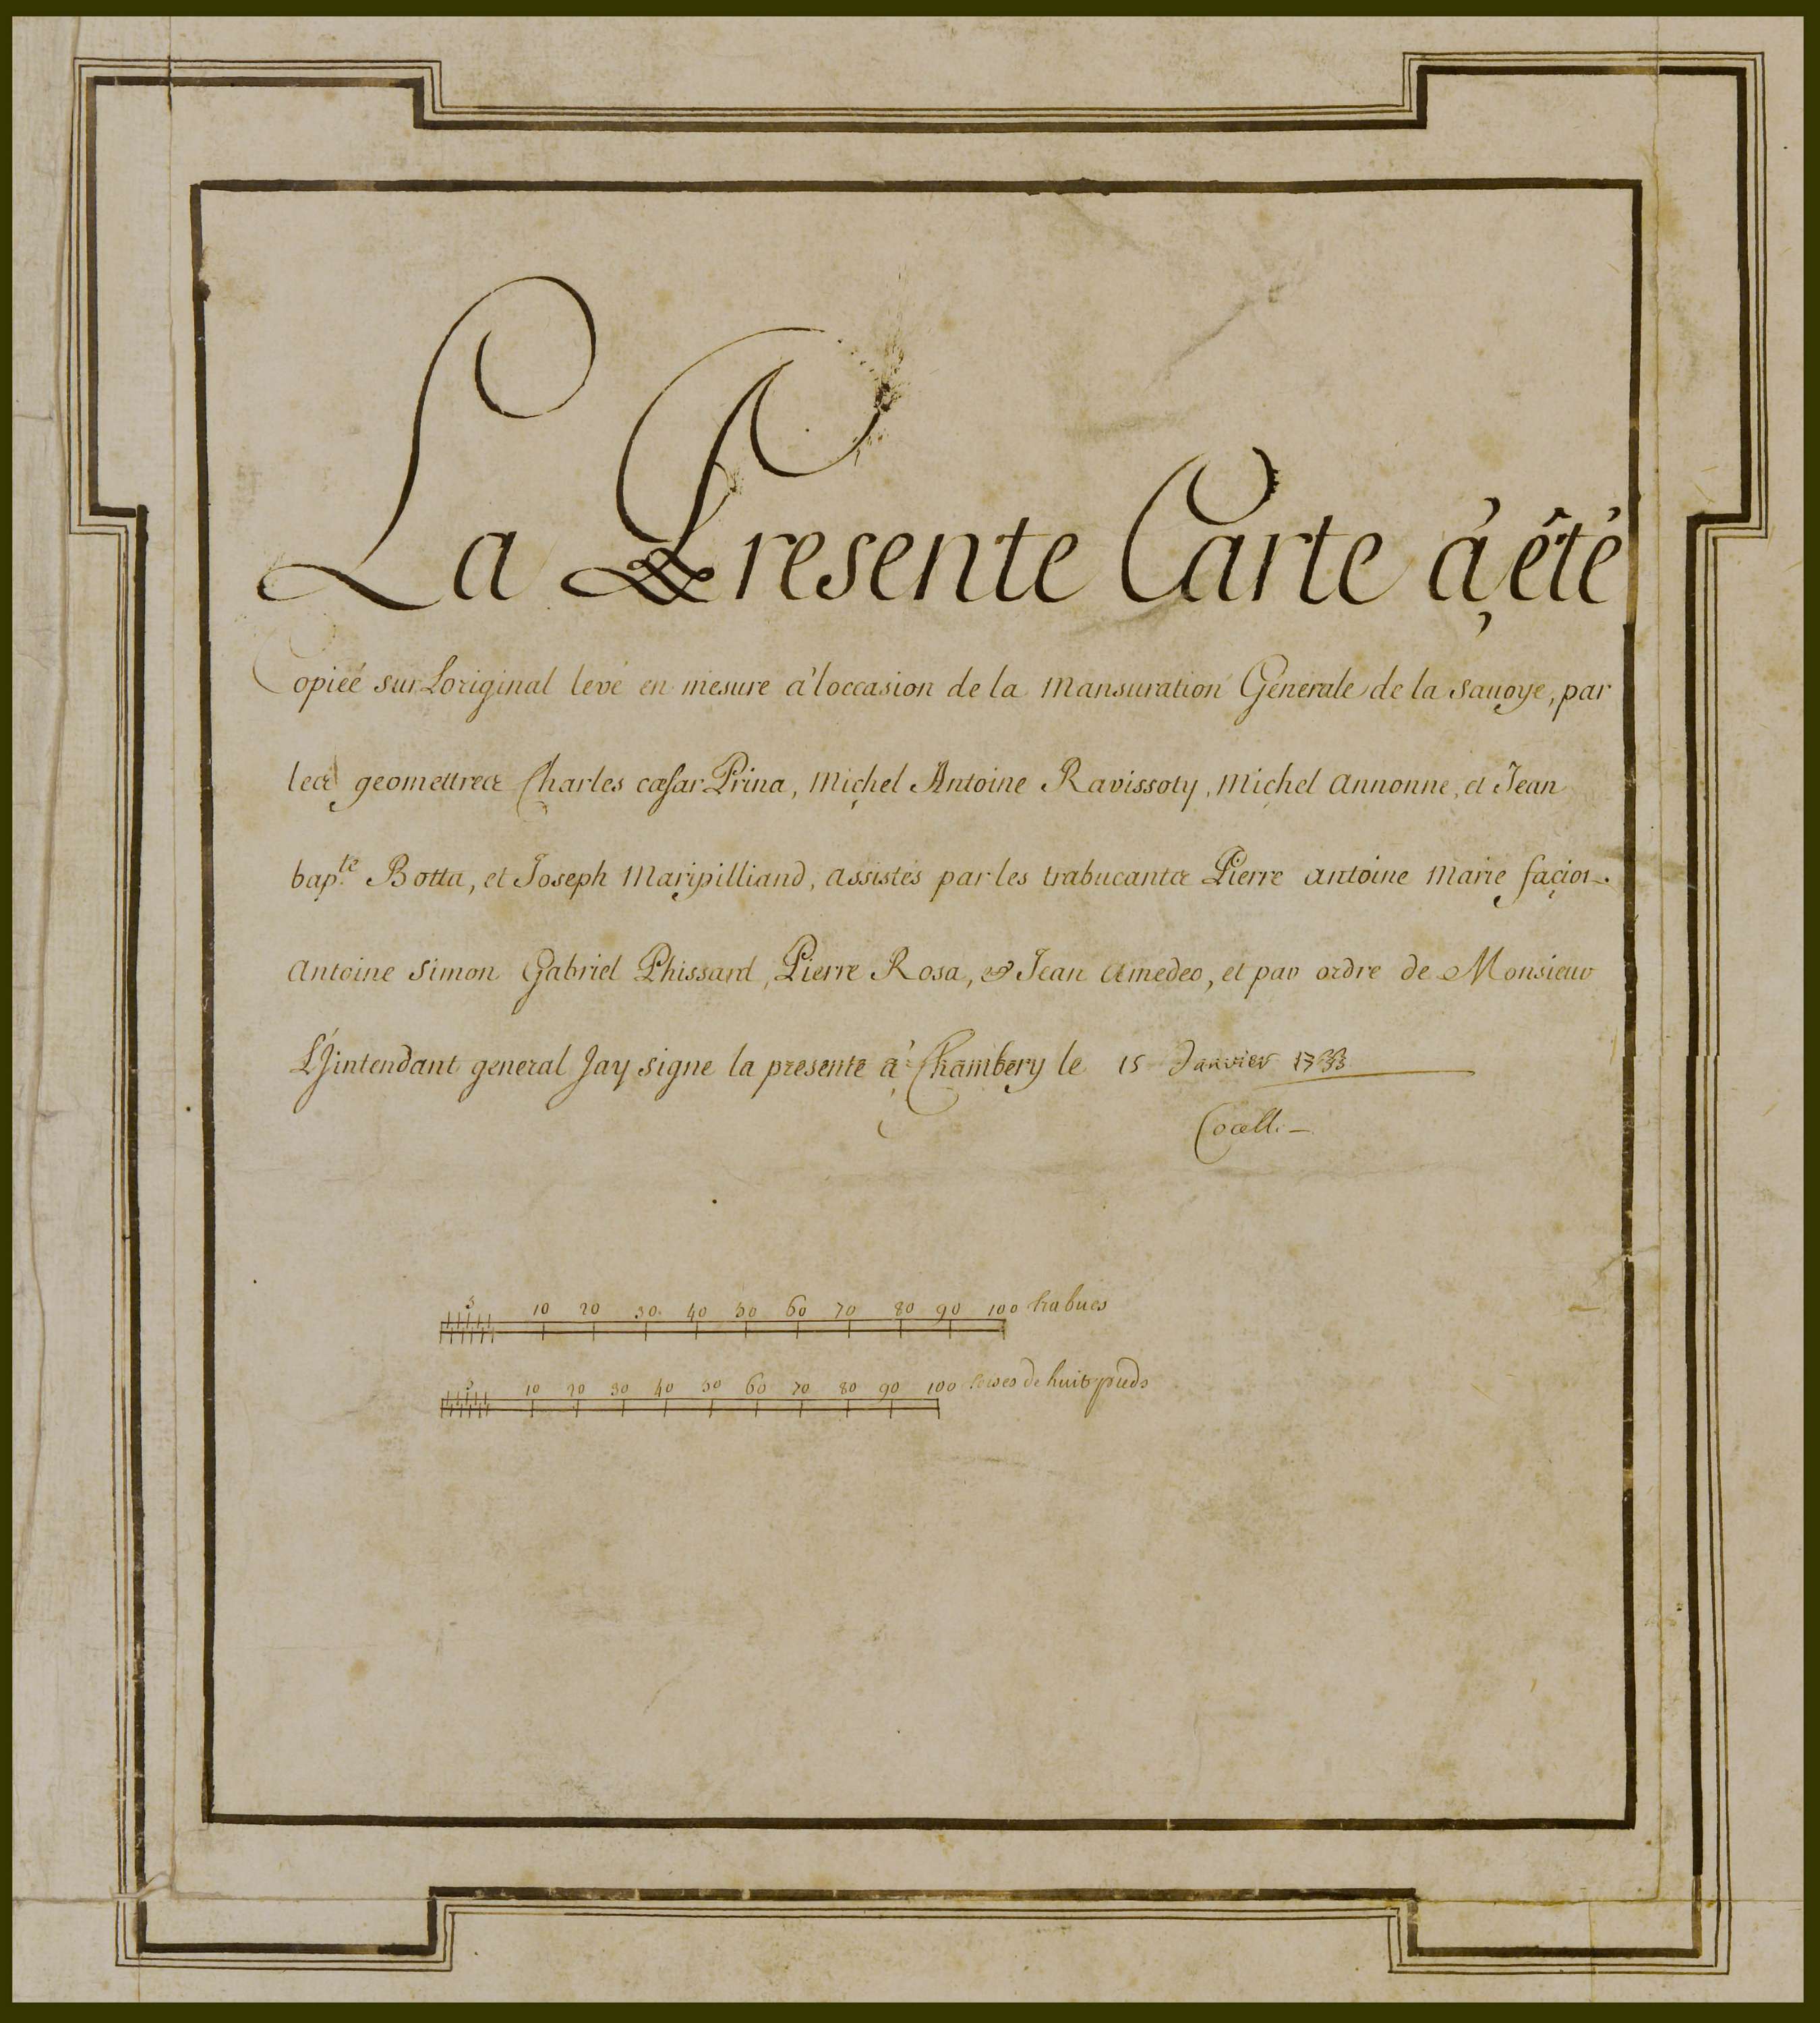 La Presente Carte à été
Copieé sur Loriginal levé en mesure à l'occasion de la mansuration Generale de la Sauoye, par
les geomettres Charles cæsar Prina, Michel Antoine Ravissoty, Michel Annonne, et Jean
bap.te Botta, et Joseph Maripilliand, assistés par les trabucants Pierre antoine Marie façior.
Antoine Simon Gabriel Phissard, Pierre Rosa, & Jean Amedeo, et par ordre de Monsieur
L'Jintendant general Jay signe la presente à Chambery le 15 Janvier 1733
Cocelli
5 10 20 30 40 50 60 70 80 90 100 trabucs
5 10 20 30 40 50 60 70 80 90 100 toises de huit pieds